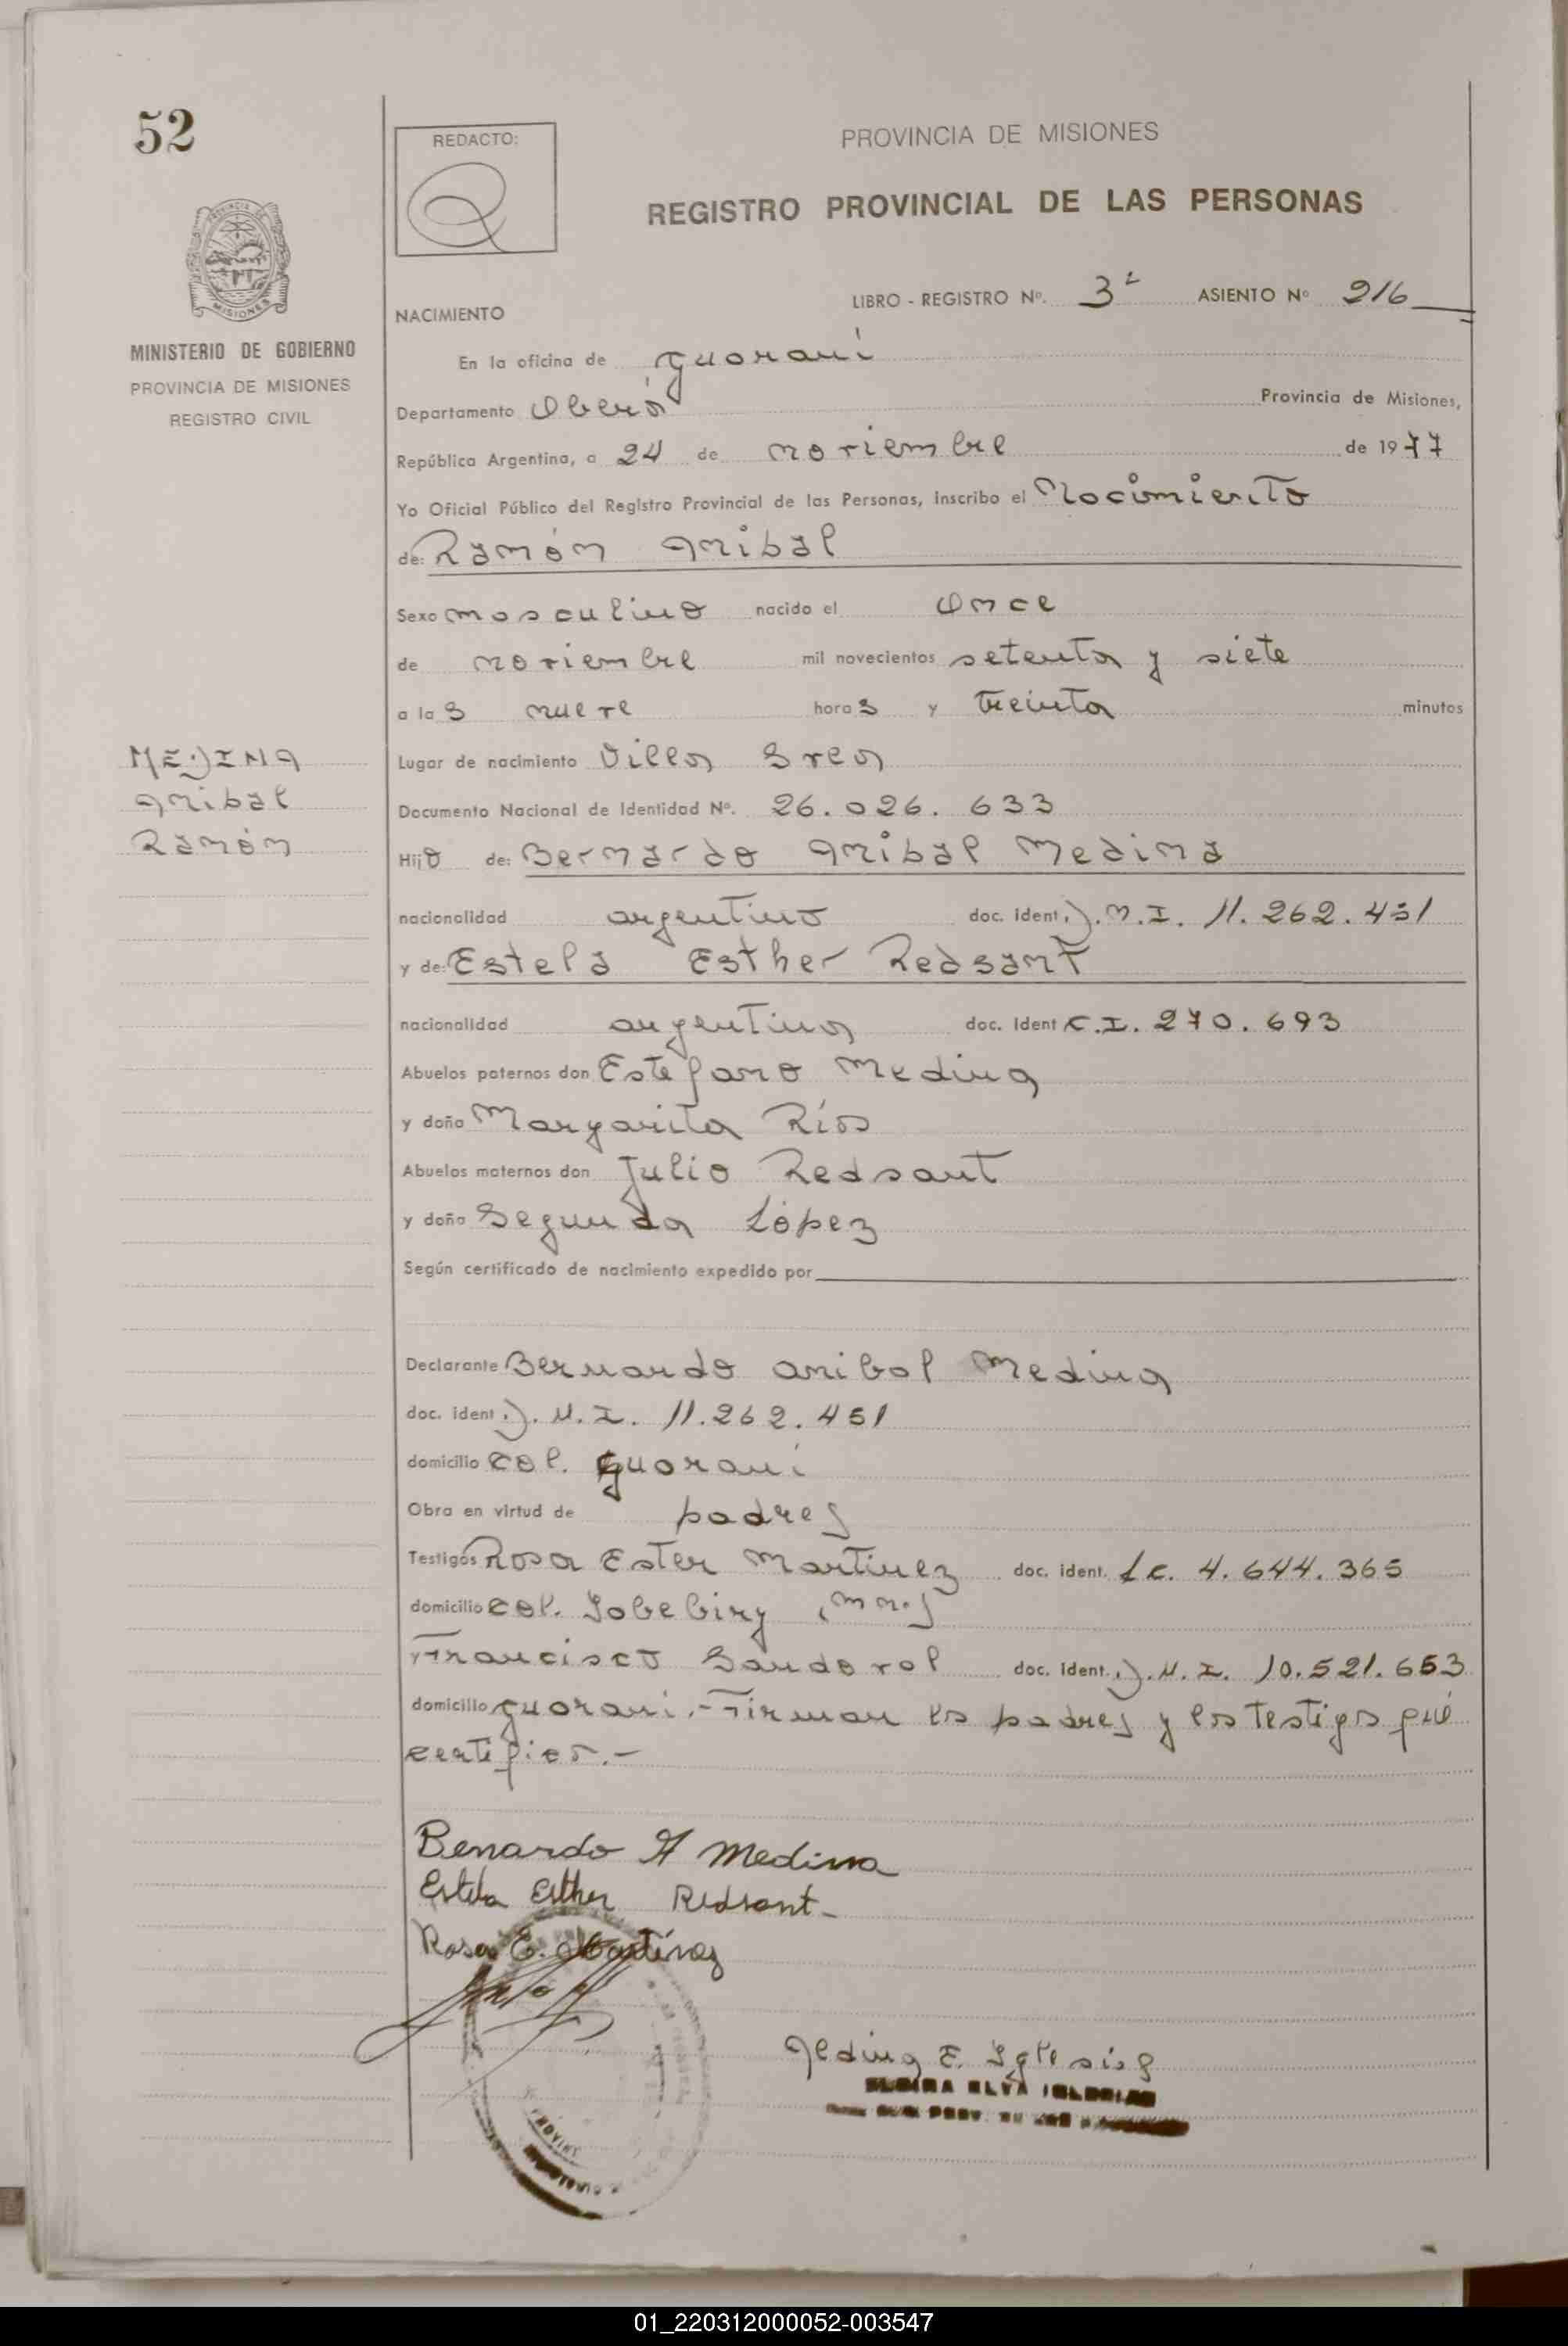 52
REDACTO:
PROVINCIA DE MISIONES
REGISTRO PROVINCIAL DE LAS PERSONAS
MISIONES
MINISTERIO DE GOBIERNO
PROVINCIA DE MISIONES
REGISTRO CIVIL
LIBRO - REGISTRO Nº. 3º ASIENTO Nº 216
NACIMIENTO
En la oficina de Guaraní
Departamento Oberá Provincia de Misiones,
República Argentina, a 24 de noviembre de 1977
Yo Oficial Público del Registro Provincial de las Personas, inscribo el Nacimiento
de: Ramón Anibal
Sexo masculino nacido el once
de noviembre mil novecientos setenta y siete
a las nueve horas y treinta minutos
MEDINA
Anibal
Ramón
Lugar de nacimiento Villa Svea
Documento Nacional de Identidad Nº. 26.026.633
Hijo de: Bernardo Anibal Medina
nacionalidad argentino doc. ident. D.N.I. 11.262.451
y de: Estela Esther Redsant
nacionalidad argentina doc. Ident C.I. 270.693
Abuelos paternos don Estefano Medina
y doña Margarita Ríos
Abuelos maternos don Julio Redsant
y doña Segunda López
Según certificado de nacimiento expedido por
Declarante Bernardo Anibal Medina
doc. ident. D.N.I. 11.262.451
domicilio Col. Guaraní
Obra en virtud de padres
Testigos Rosa Ester Martinez doc. ident. L.C. 4.644.365
domicilio Col. Yabebiry (Mnes)
y Francisco Sandoval doc. Ident. D.N.I. 10.521.653
domicilio Guaraní.- Firman los padres y los testigos que
certifico.-
Benardo A Medina
Estela Esther Redsant-
Rosa E. Martínez
Aldina E. Iglesias
01_220312000052-003547